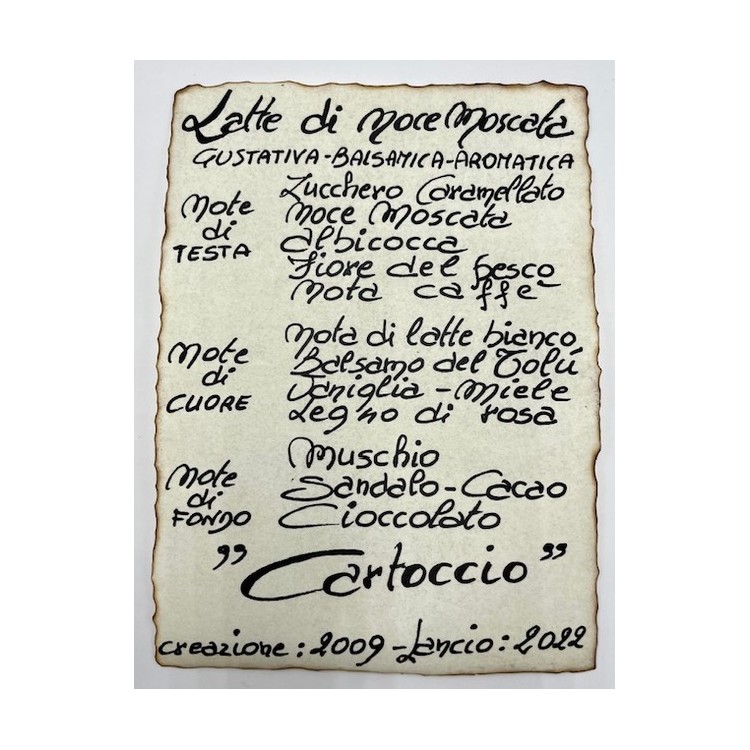 Latte di noce Moscata
GUSTATIVA-BALSAMICA-AROMATICA
Note di TESTA
Zucchero Caramellato
noce Moscata
albicocca
Fiore del pesco
Nota caffè
Note di CUORE
Nota di latte bianco
Balsamo del Tolù
Vaniglia - Miele
Legno di rosa
Note di FONDO
Muschio
Sandalo - Cacao
Cioccolato
"Cartoccio"
creazione: 2009 - Lancio: 2022